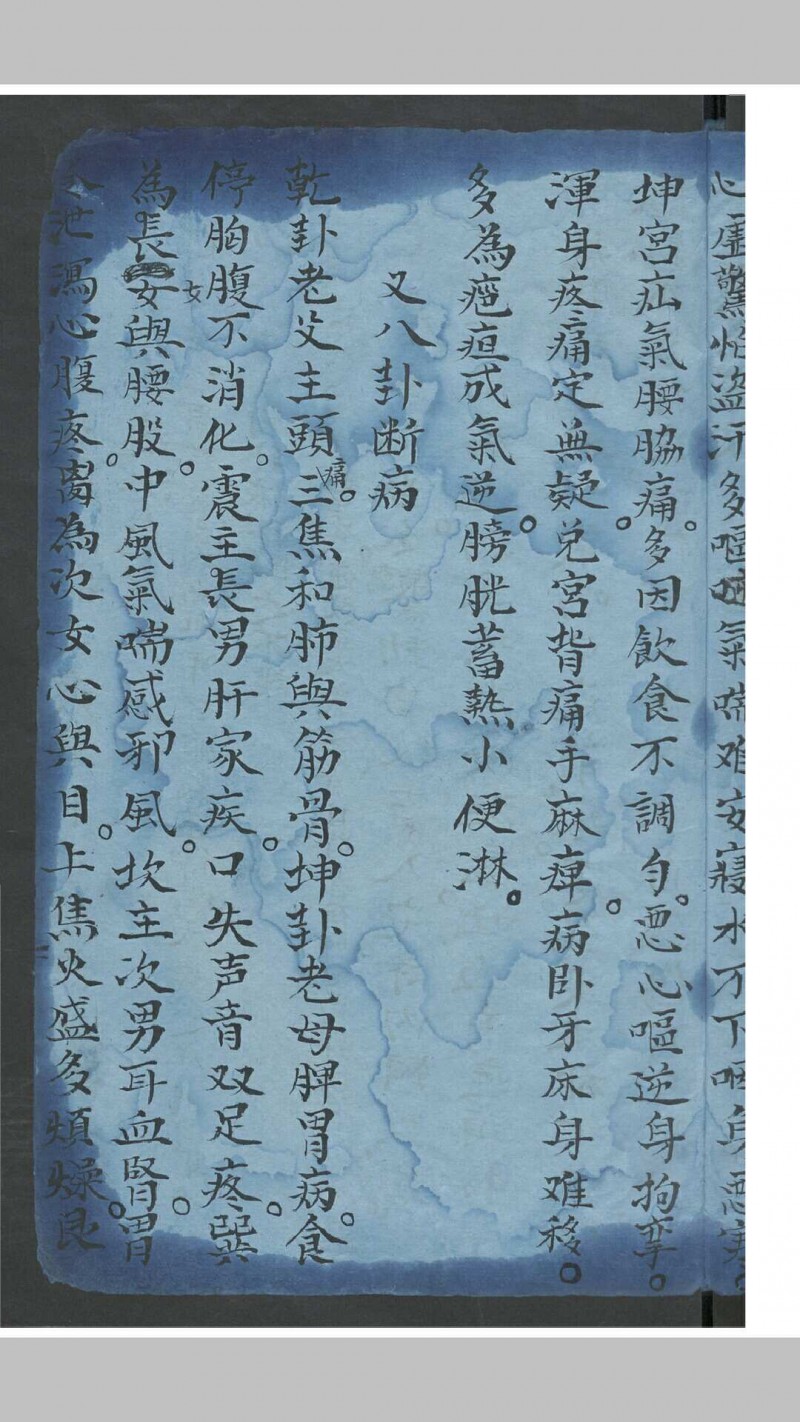 心虛驚怕盜汗多嘔 氣喘难安寢水不下咽身惡寒。
坤宮疝氣腰脇痛。多因飲食不調勻。惡心嘔逆身拘挛。
渾身疼痛定無疑。兌宮背痛手麻痺。病卧牙床身难移。
多為疸成氣逆。膀胱蓄熱小便淋。
又八卦断病
乾卦老父主頭痛。三焦和肺與筋骨。坤卦老母脾胃病。食
停胸腹不消化。震主長男肝家疾。口失声音双足疼。巽
為長女與腰股。中風氣喘感邪風。坎主次男耳血腎。胃
冷泄瀉心腹疼。离為次女心與目。上焦火盛多煩燥。艮